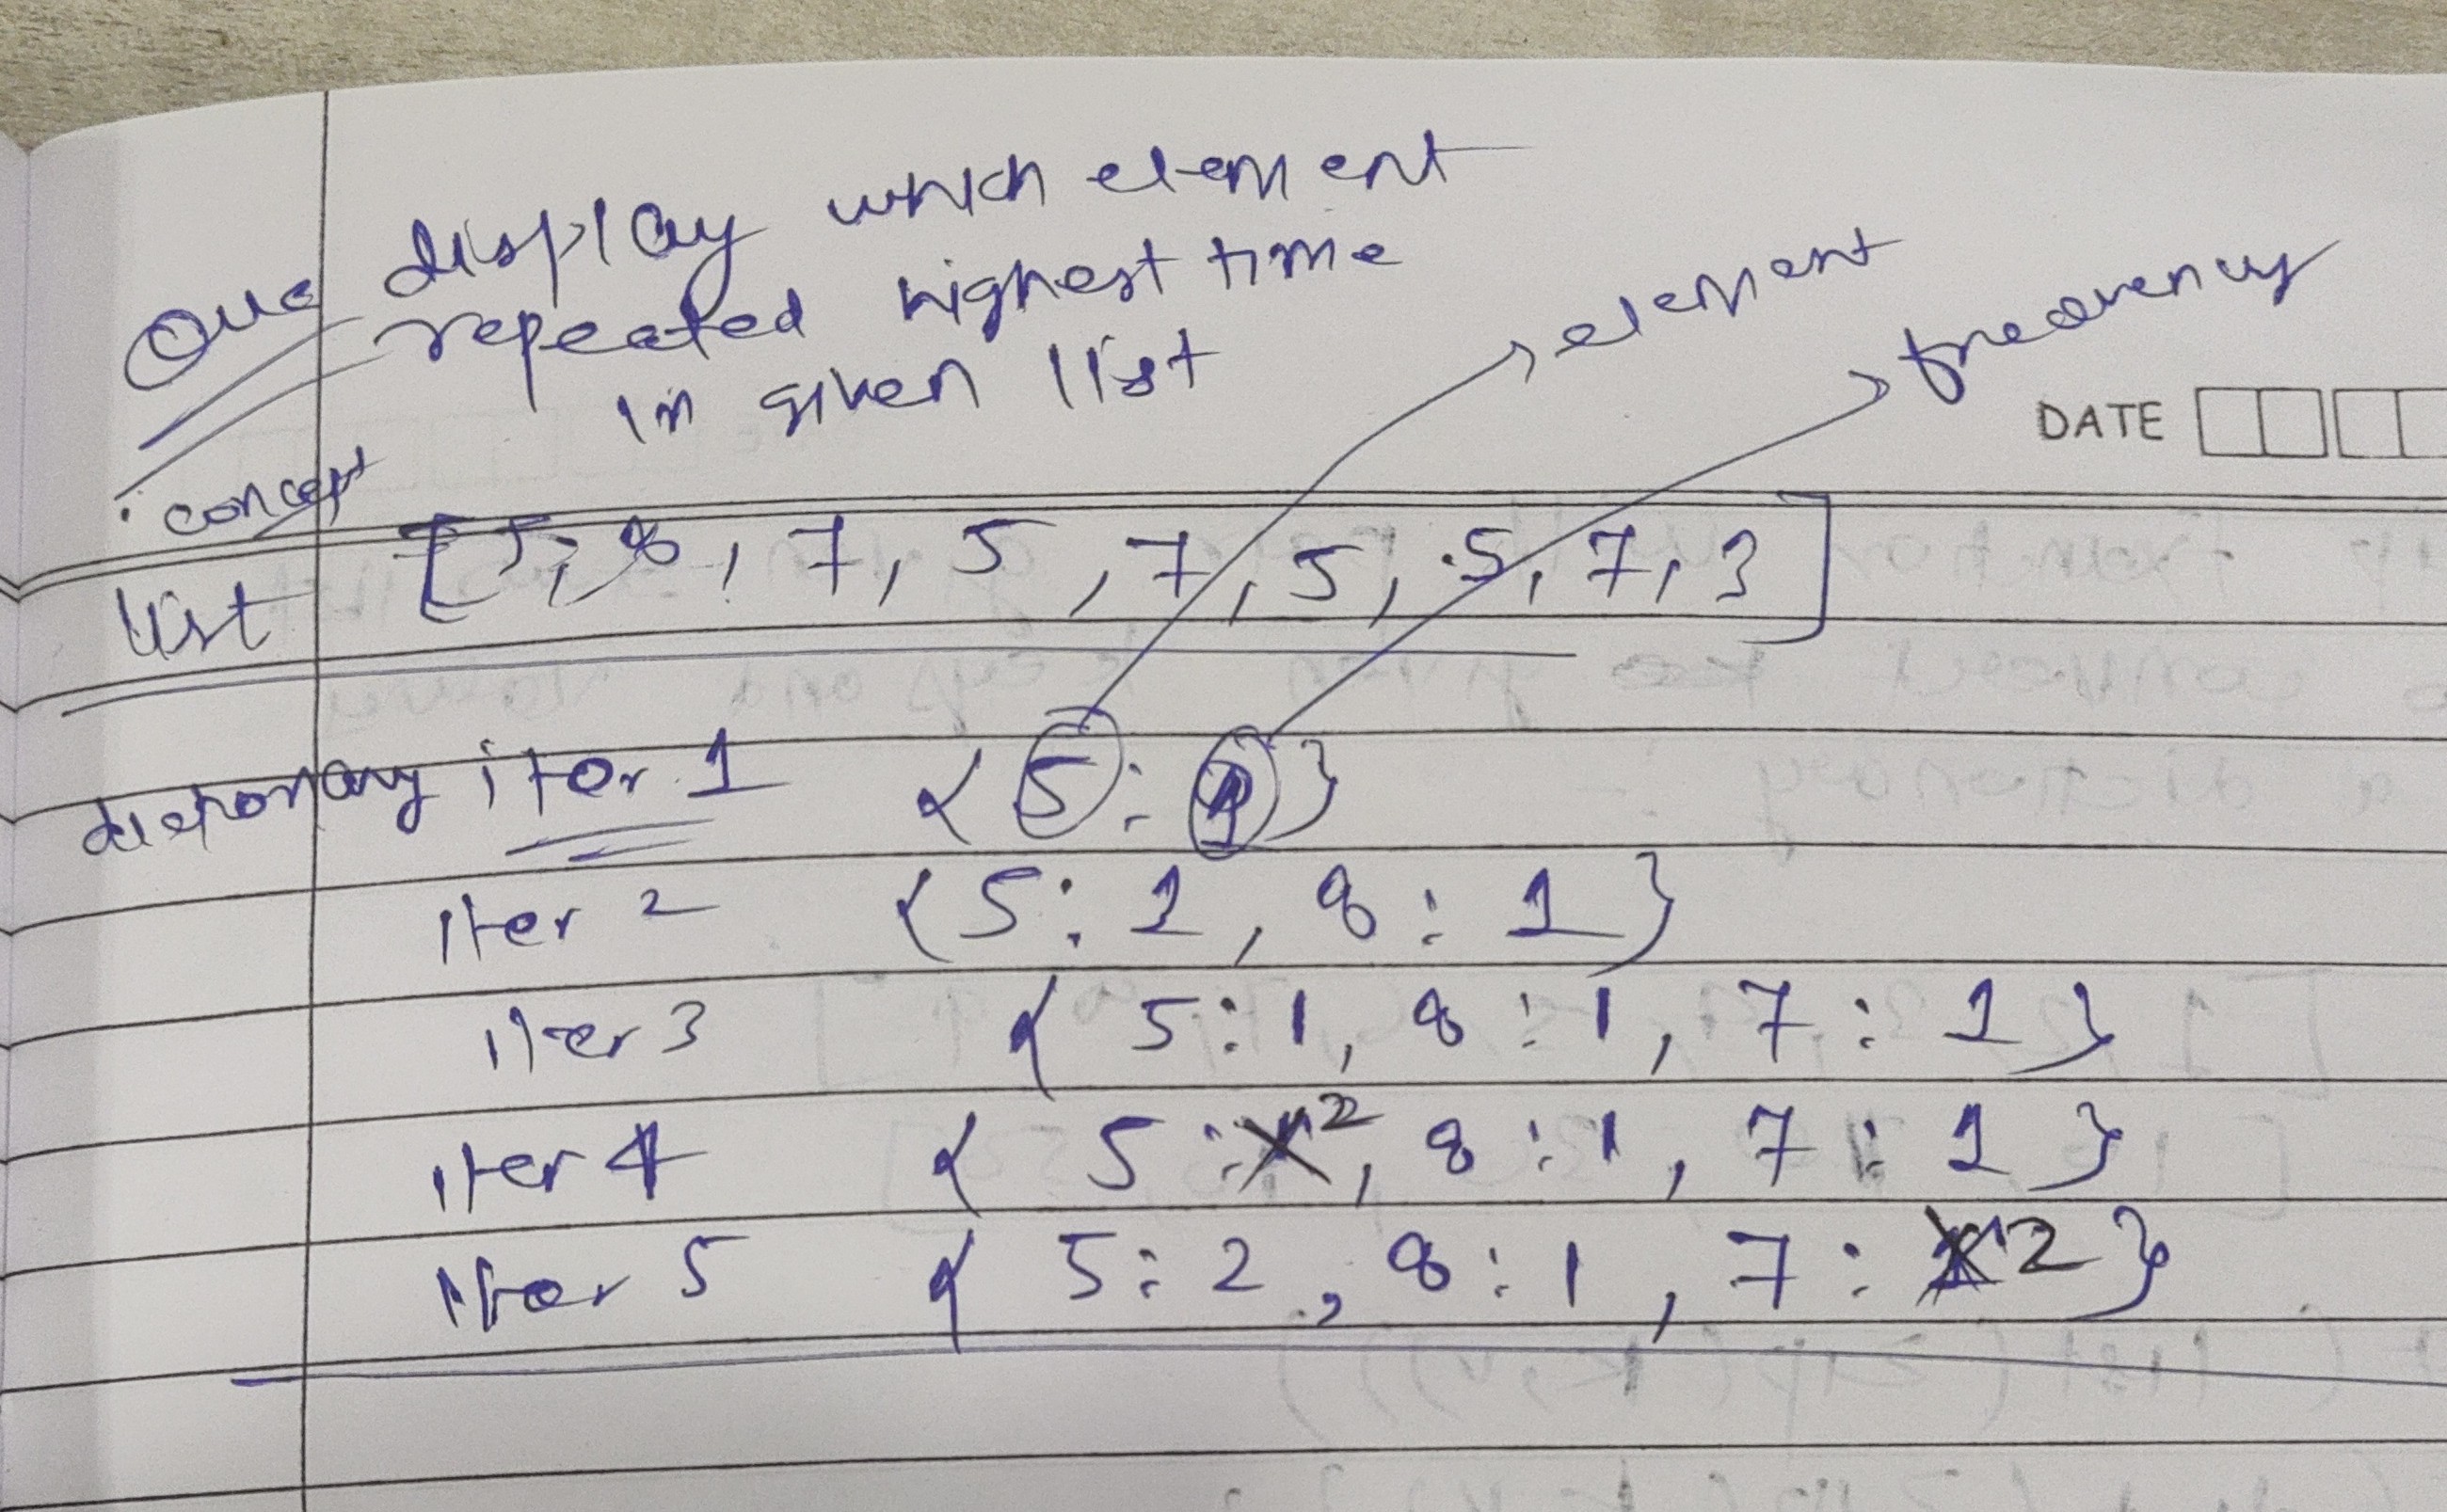 Que display which element
repeated highest time
in given list
element
frequency
DATE
concept
list [5, 8, 7, 5, 7, 5, 5, 7, 3]
dictionary iter 1 { 5 : 1 }
iter 2 { 5 : 1 , 8 : 1 }
iter 3 { 5 : 1 , 8 : 1 , 7 : 1 }
iter 4 { 5 : 2 , 8 : 1 , 7 : 1 }
iter 5 { 5 : 2 , 8 : 1 , 7 : 2 }